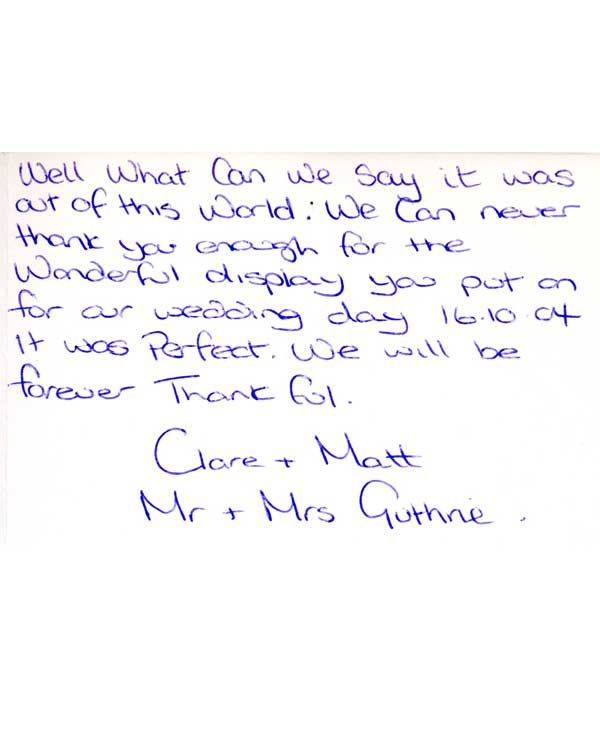 Well What Can we Say it was
out of this World: We Can never
thank you enough for the
Wonderful display you put on
for our wedding day 16.10.04
It was Perfect. We will be
forever Thank ful.
Clare + Matt
Mr + Mrs Guthrie.